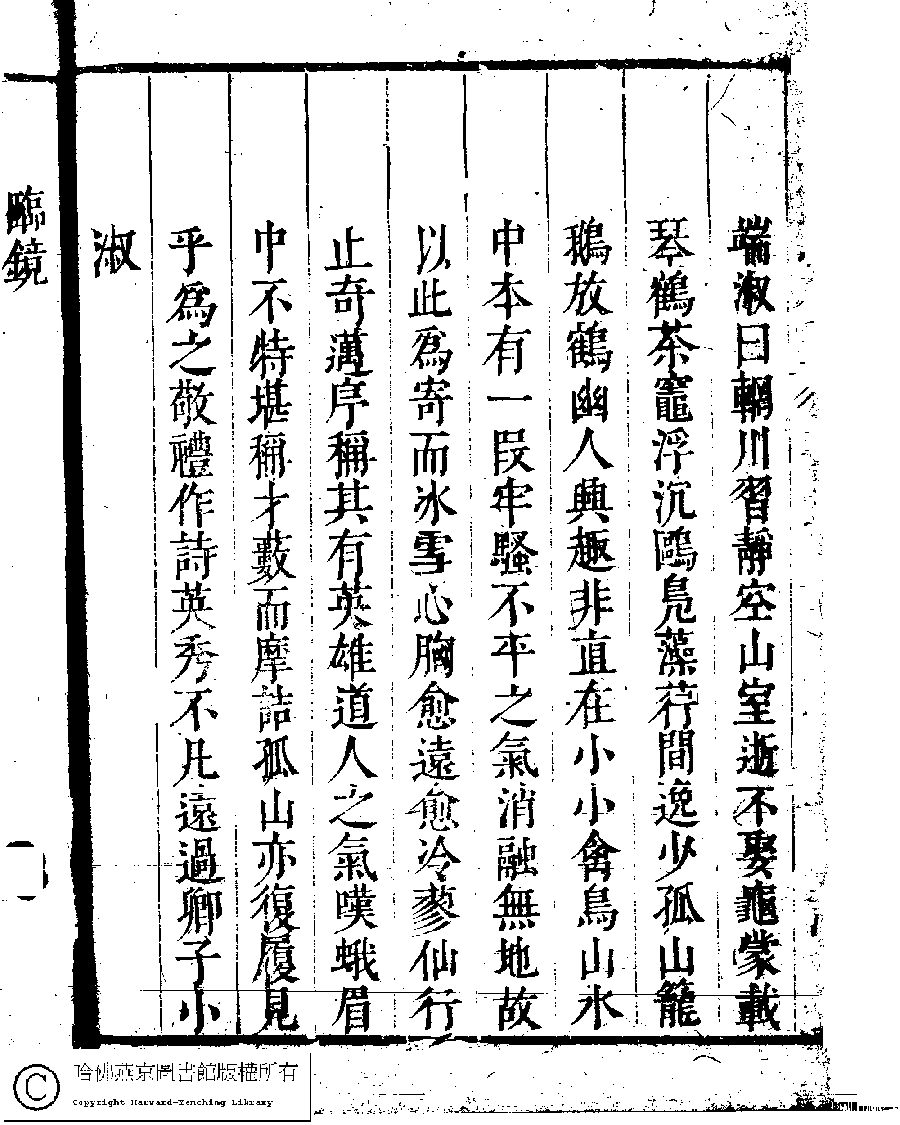 端淑曰輞川習靜空山室逝不娶龜蒙載
琴鶴茶竈浮沉鷗鳧藻荇間逸少孤山籠
鵝放鶴幽人興趣非直在小小禽鳥山水
中本有一段牢騷不平之氣消融無地故
以此為寄而氷雪心胸愈遠愈冷蓼仙行
止奇邁序稱其有英雄道人之氣嘆蛾眉
中不特堪稱才藪而摩詰孤山亦復履見
乎爲之敬禮作詩英秀不凡遠過卿子小
淑
臨鏡
哈佛燕京圖書館版權所有
Copyright Harvard-Yenching Library